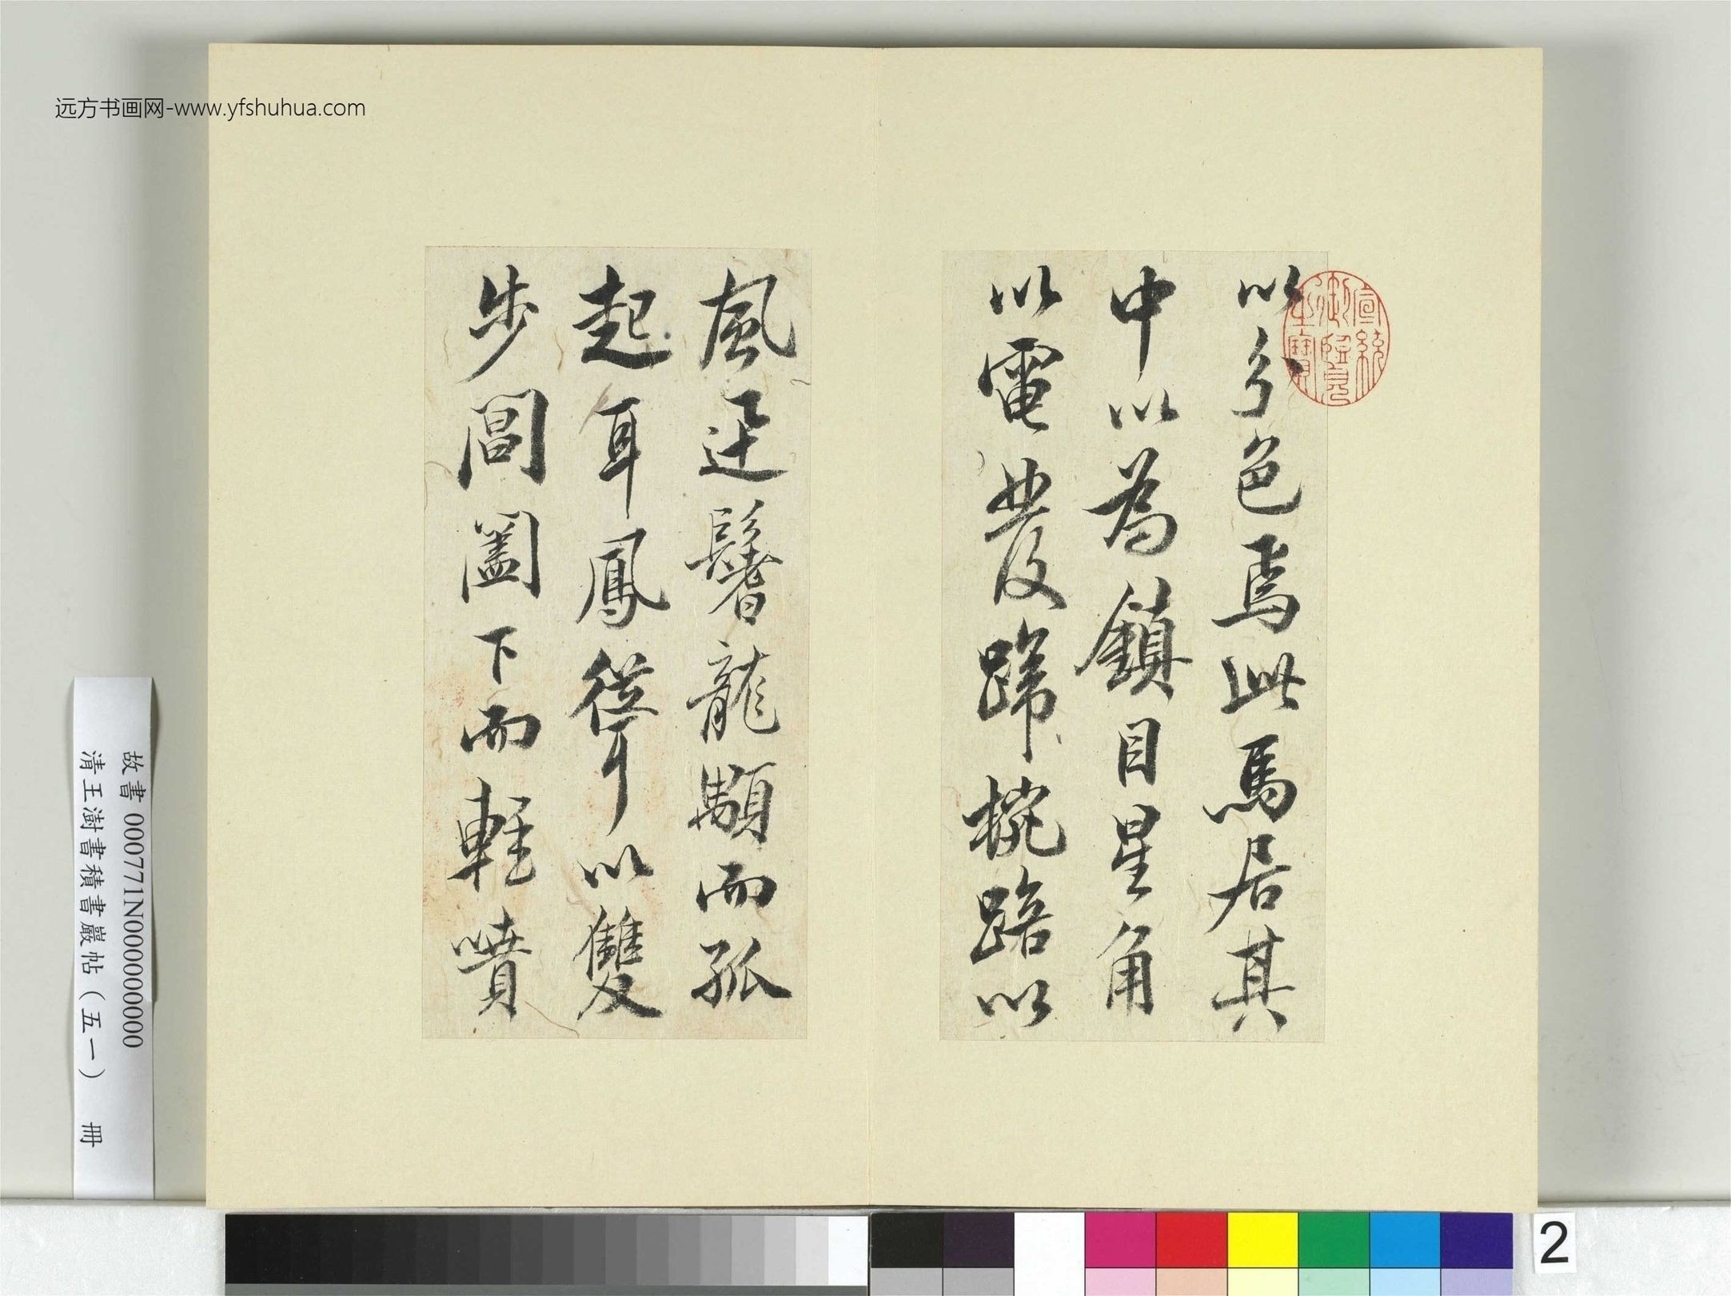 远方书画网-www.yfshuhua.com
以分色焉此馬居其
中以為鎮目星角
以電發蹄椀踣以
風迊鬐龍顒而孤
起耳鳳聳以雙
步閶闔下而輕噴
宣統
御覽
之寶
故書 000771N000000000
清王澍書積書巖帖(五一) 冊
2